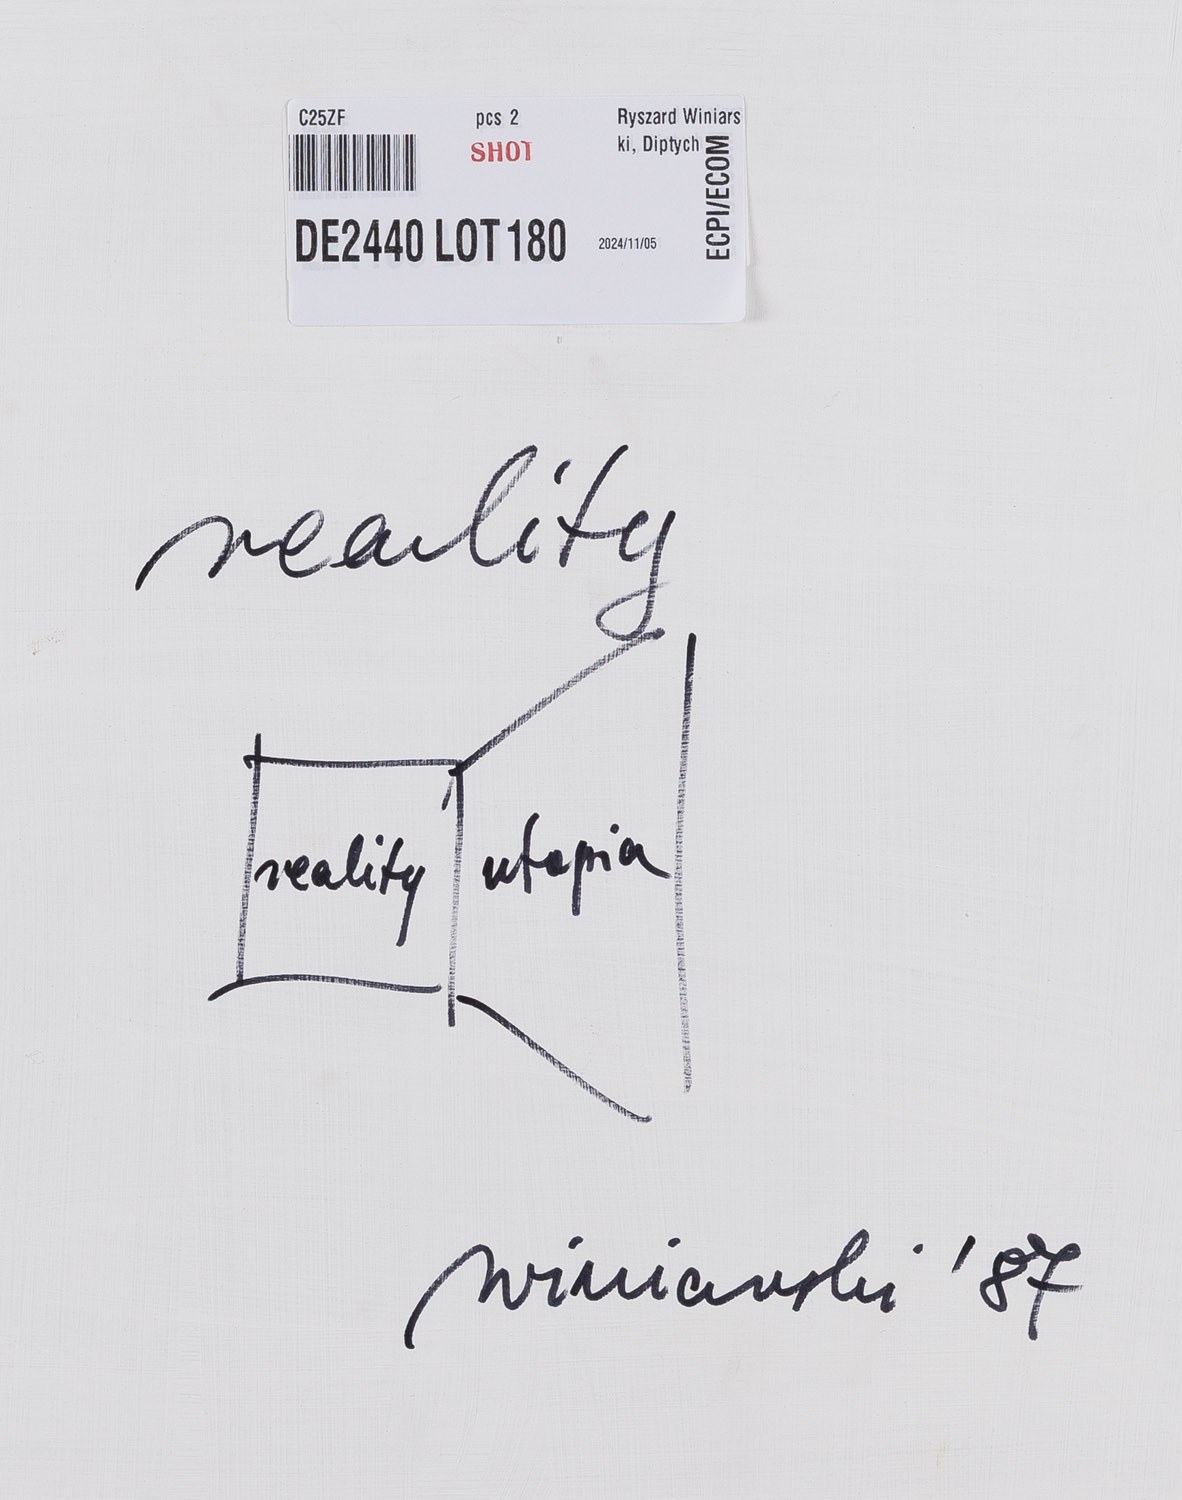 C25ZF
pcs 2
SHOT
Ryszard Winiars
ki, Diptych
ECPI/ECOM
DE2440 LOT 180
2024/11/05
reality
reality utopia
winiarski '87